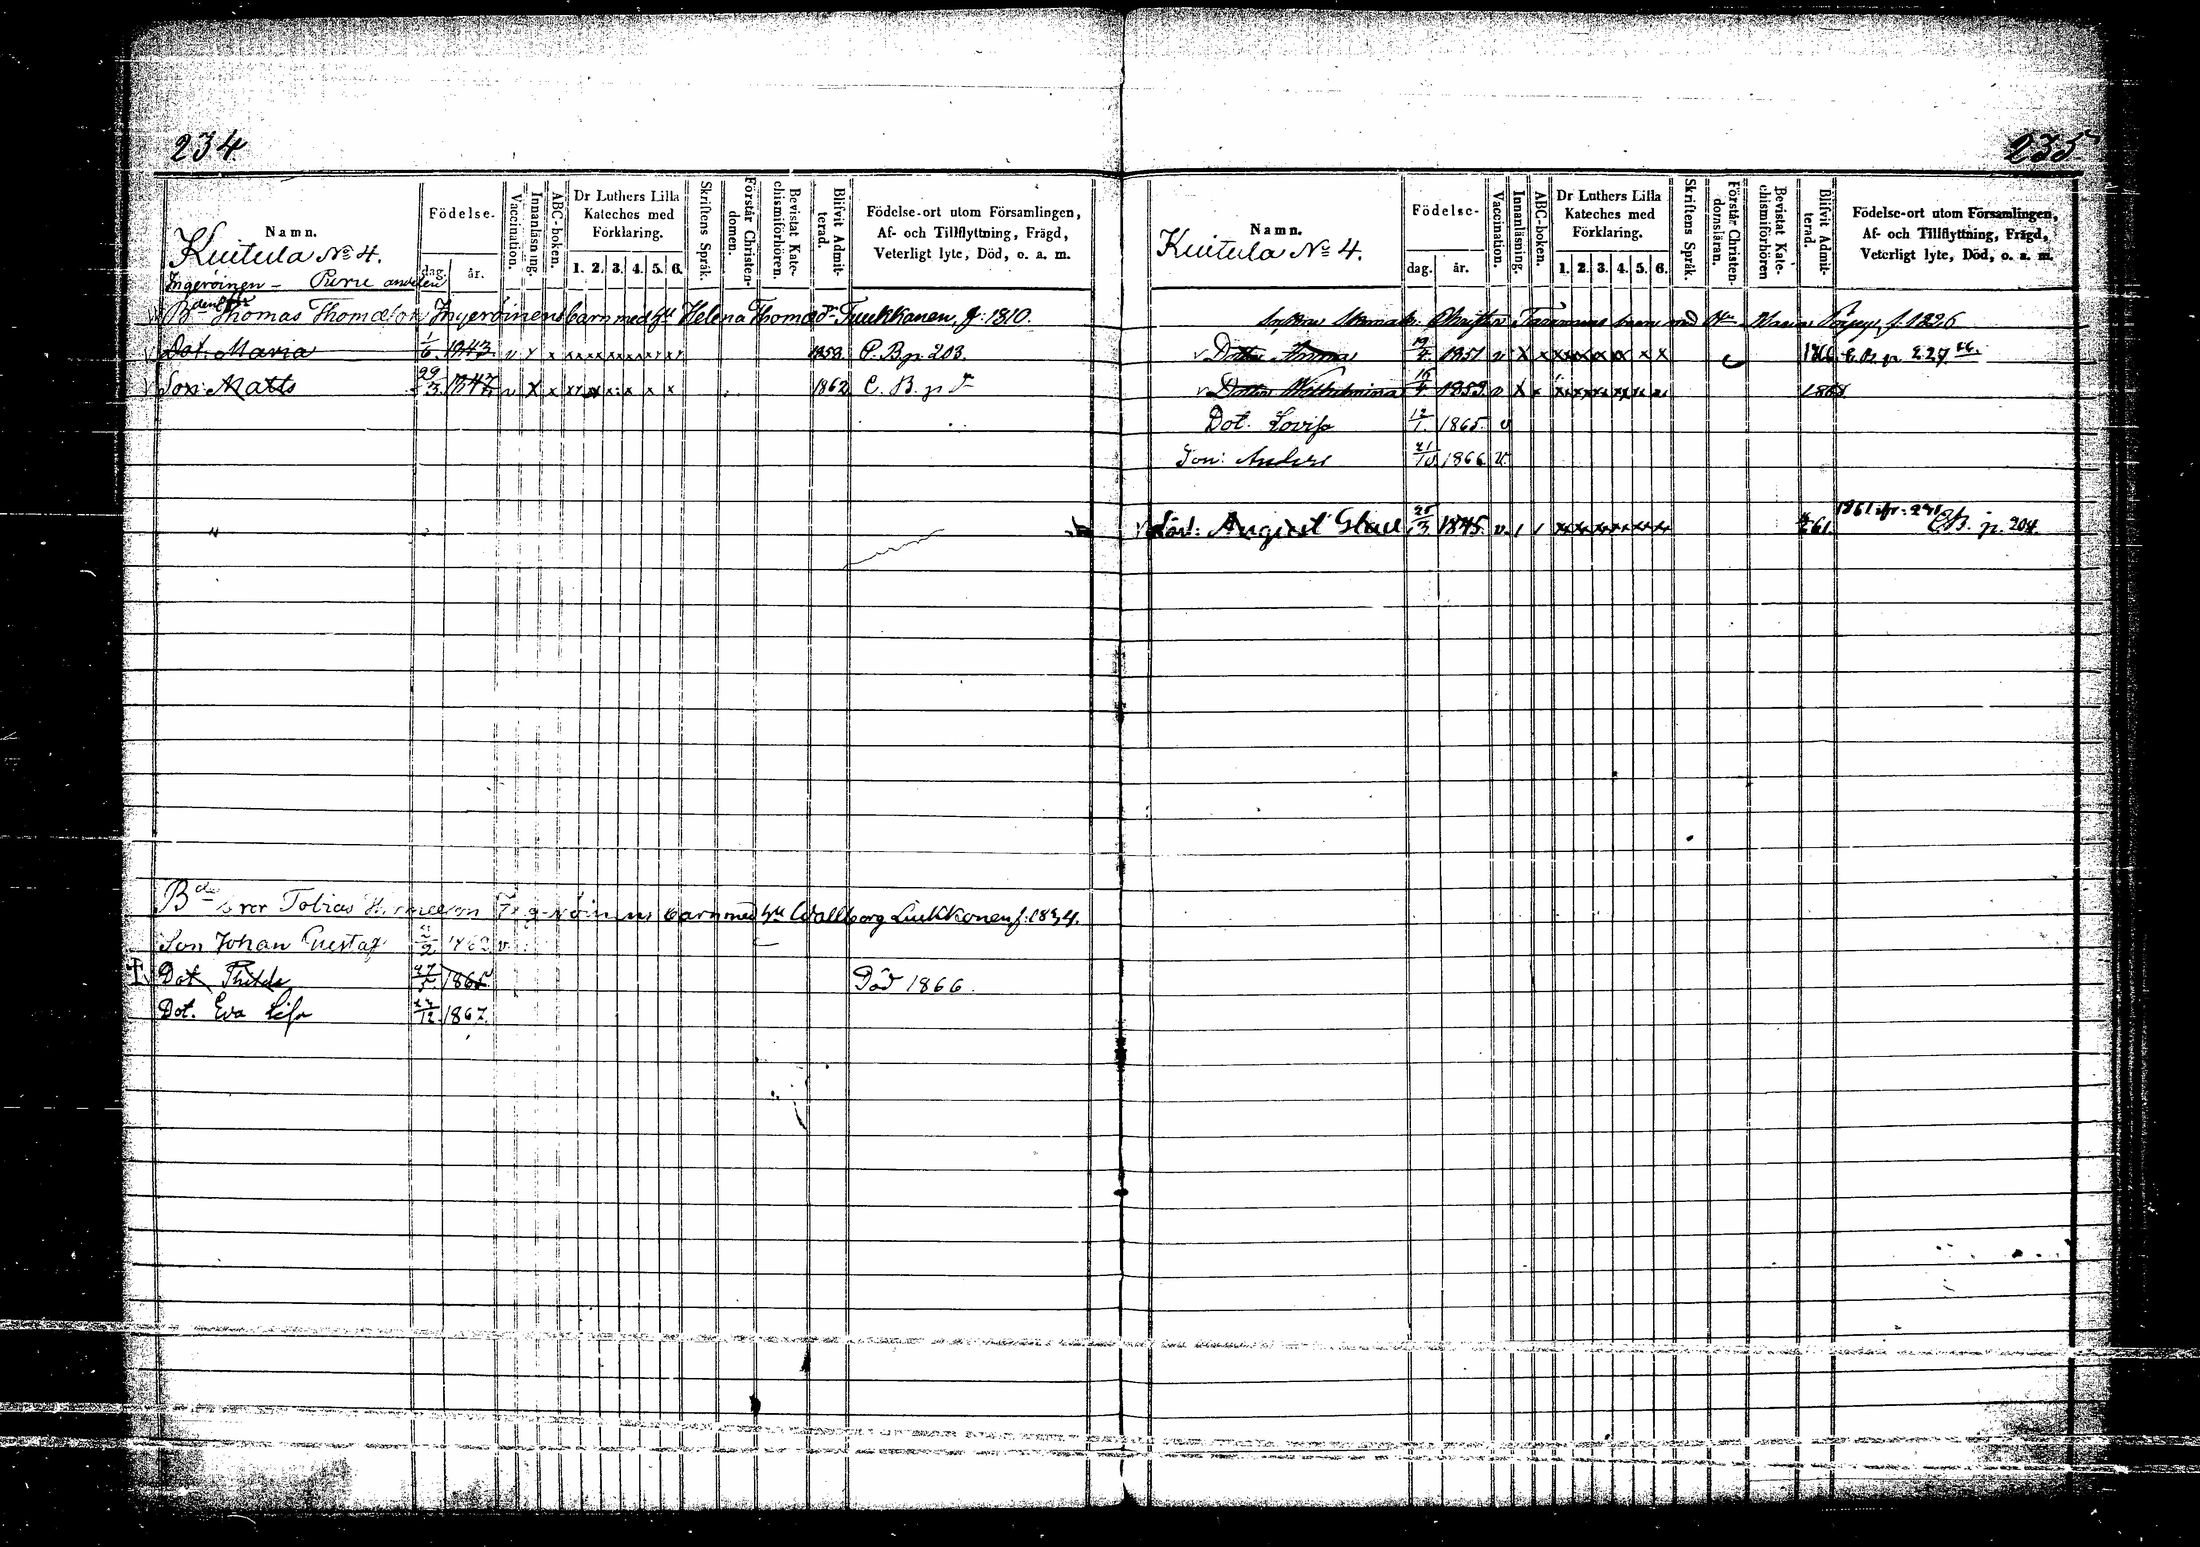 234
Namn.
Födelse-
dag. år.
Vaccination.
Innanläsning.
ABC-boken.
Dr Luthers Lilla Kateches med Förklaring.
1. 2. 3. 4. 5. 6.
Skriftens Språk.
Förstår Christendomen.
Bevistat Katechismiförhören.
Blifvit Admitterad.
Födelse-ort utom Församlingen,
Af- och Tillflyttning, Frägd,
Veterligt lyte, Död, o. a. m.
Kuitula No 4.
Ingeröinen - Puru
Bden Thomas Thomæson Ingeröinens barn med Hu Helena Thomædr Tuukkanen, f. 1810.
v Dot. Maria 1/6 1843. v x x xx xx xx xx xx xx 1858. C. B. p. 203.
v Son Matts 29/3 1847 v x x xx xx x x x x 1862 C. B. p.
Bde bror Tobias Ingeröinens barn med Hu Wallborg Liukkonen f. 1834.
Son Johan Gustaf 2/2 1862 v
Dot 27/5 1865 Död 1866.
Dot. Eva Lisa 27/12 1867.
235
Namn.
Födelse-
dag. år.
Vaccination.
Innanläsning.
ABC-boken.
Dr Luthers Lilla Kateches med Förklaring.
1. 2. 3. 4. 5. 6.
Skriftens Språk.
Förstår Christendomsläran.
Bevistat Katechismiförhören
Blifvit Admitterad.
Födelse-ort utom Församlingen,
Af- och Tillflyttning, Frägd,
Veterligt lyte, Död, o. a. m.
Kuitula No 4.
barn med Hu Maria f. 1826
v Dotter Anna 19/4 1851 v x x xx xx x x x x 1866 C. B. p. 227
v Dotter Wilhelmina 16/4 1853. v x x xx xx xx xx x x 1868
Dot. Lovisa 12/1 1865. v
Son: Anders 21/10 1866 v.
v August 25/3 1845. v. / / xx xx xx xx xx xx 61. 1861 fr: 241 CB. p. 204.